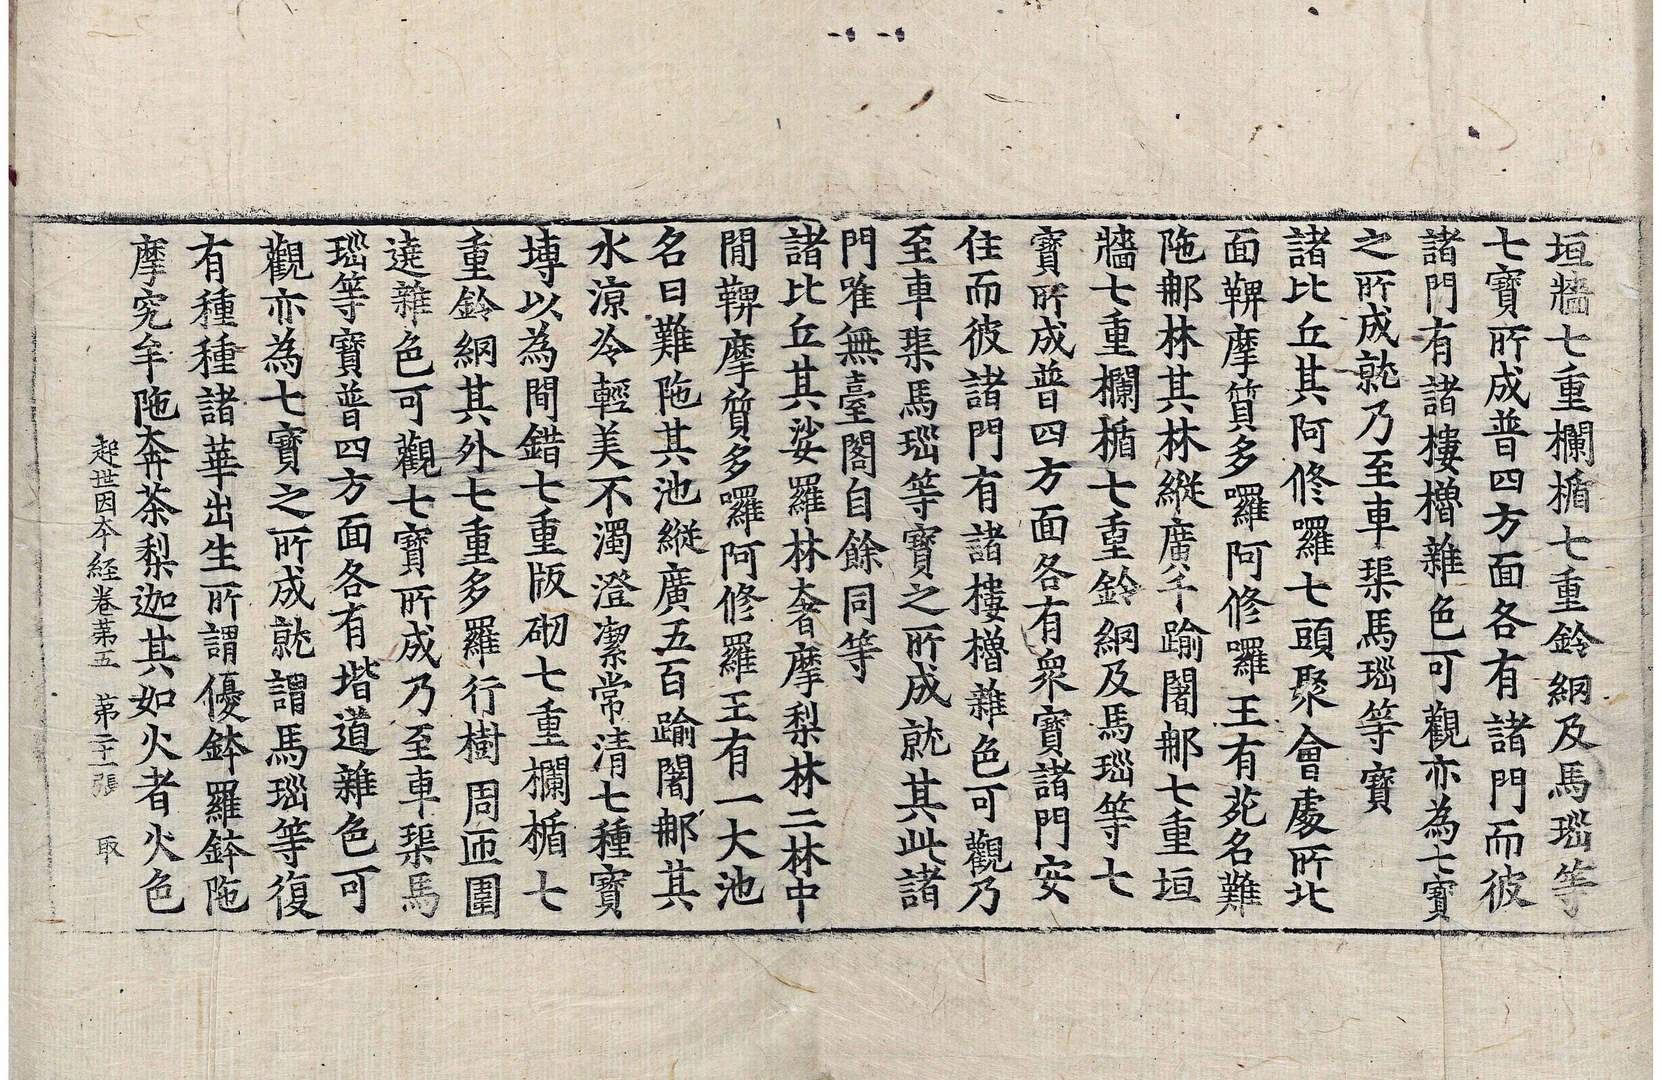 垣牆七重欄楯七重鈴網及馬瑙等
七寶所成普四方面各有諸門而彼
諸門有諸樓櫓雜色可觀亦為七寶
之所成就乃至車𤦲馬瑙等寶
諸比丘其阿修囉七頭聚會處所北
面鞞摩質多囉阿修囉王有苑名難
陁那林其林縱廣千踰闍那七重垣
牆七重欄楯七重鈴網及馬瑙等七
寶所成普四方面各有衆寶諸門安
住而彼諸門有諸樓櫓雜色可觀乃
至車𤦲馬瑙等寶之所成就其此諸
門唯無臺閣自餘同等
諸比丘其娑羅林奢摩梨林二林中
間鞞摩質多囉阿修羅王有一大池
名曰難陁其池縱廣五百踰闍那其
水涼冷輕美不濁澄潔常清七種寶
塼以為間錯七重版砌七重欄楯七
重鈴網其外七重多羅行樹周匝圍
遶雜色可觀七寶所成乃至車𤦲馬
瑙等寶普四方面各有堦道雜色可
觀亦為七寶之所成就謂馬瑙等復
有種種諸華出生所謂優鉢羅鉢陁
摩究牟陁奔荼梨迦其如火者火色
起世因本經卷苐五　苐二十一張　取